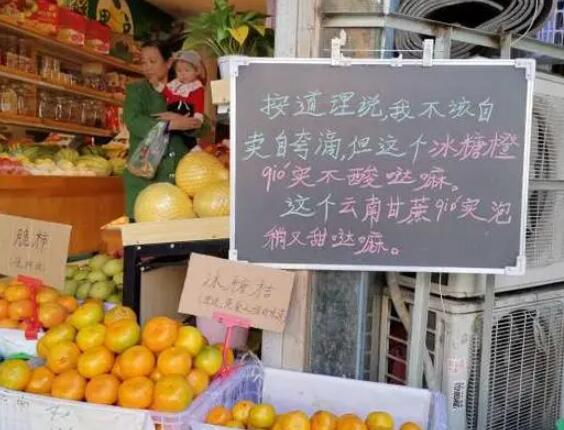 按道理说,我不该自
卖自夸滴,但这个冰糖橙
gió实不酸哒嘛。
这个云南甘蔗gió实泡
稍又甜哒嘛。
脆柿
冰糖桔